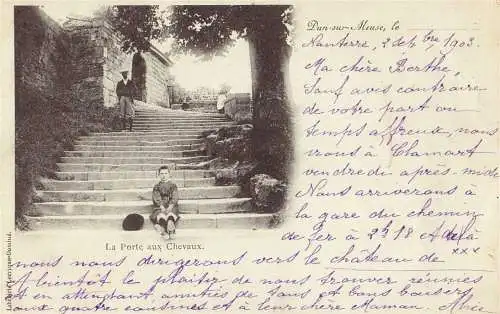 Dun-sur-Meuse, le
Nanterre, 2 7bre 1903.
Ma chère Berthe,
Sauf avis contraire
de votre part ou
temps affreux, nous
irons à Clamart
vendredi après-midi
Nous arriverons à
la gare du chemin
de fer à 2h18 et de là
La Porte aux Chevaux.
nous nous dirigerons vers le château de xxx
et bientôt le plaisir de nous trouver réunies
et en attendant, amitiés de tous et bons baisers
aux quatre cousines et à leur chère Maman.